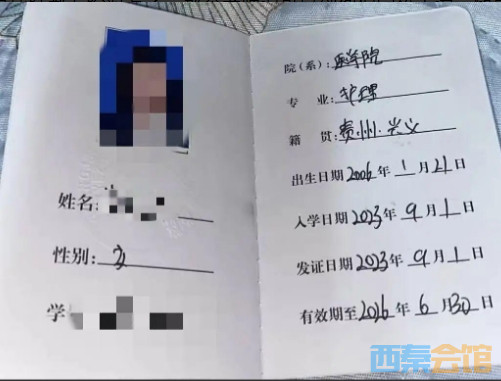 姓名:
性别: 女
学
院(系): 医学院
专 业: 护理
籍 贯: 贵州·兴义
出生日期 2006 年 1 月 21 日
入学日期 2023 年 9 月 1 日
发证日期 2023 年 9 月 1 日
有效期至 2026 年 6 月 30 日
西秦会馆